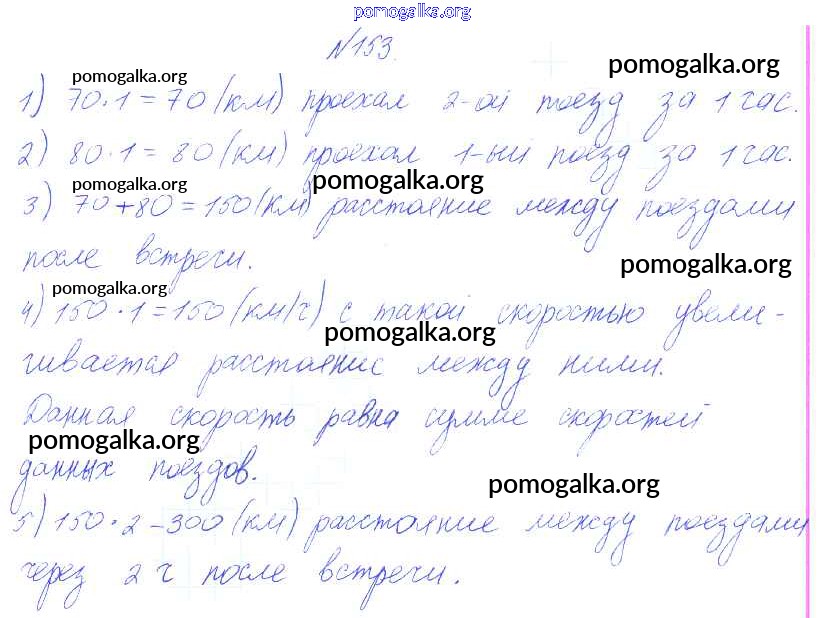 pomogalka.org
№153.
pomogalka.org
pomogalka.org
1) 70·1=70 (км) проехал 2-ой поезд за 1 час.
2) 80·1=80 (км) проехал 1-ый поезд за 1 час.
pomogalka.org
pomogalka.org
3) 70+80=150 (км) расстояние между поездами
после встречи.
pomogalka.org
pomogalka.org
4) 150·1=150 (км/ч) с такой скоростью увели-
pomogalka.org
чивается расстояние между ними.
Данная скорость равна сумме скоростей
pomogalka.org
данных поездов.
pomogalka.org
5) 150·2-300 (км) расстояние между поездами
через 2 ч после встречи.